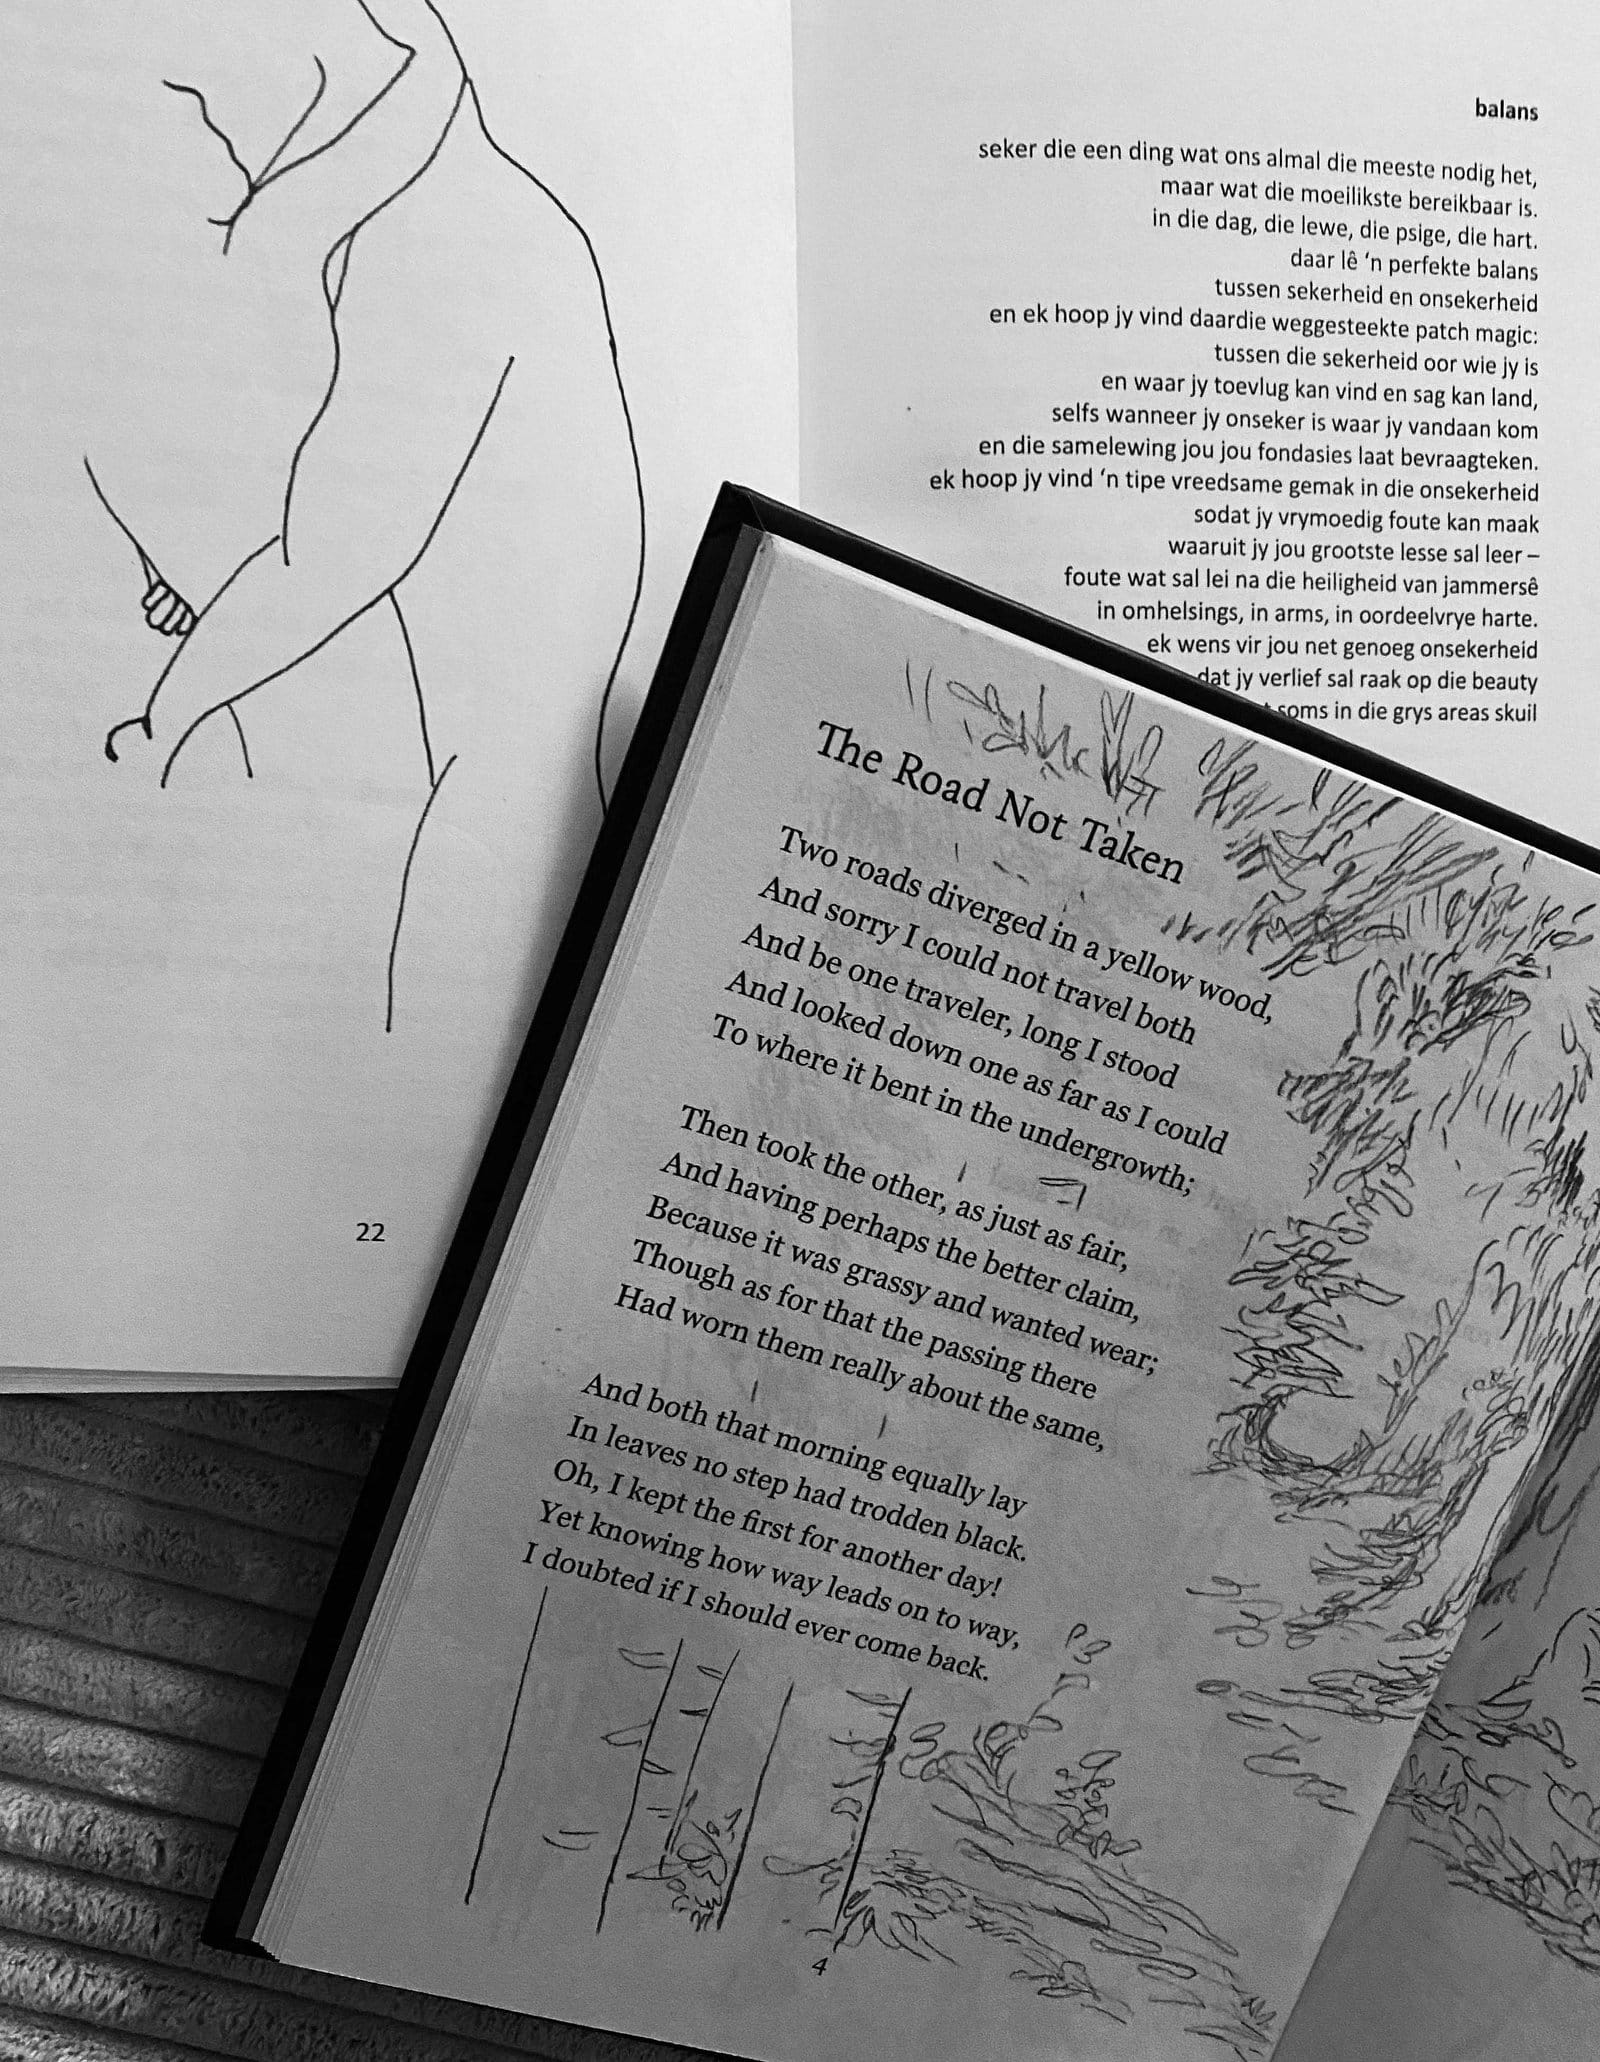 balans
seker die een ding wat ons almal die meeste nodig het,
maar wat die moeilikste bereikbaar is.
in die dag, die lewe, die psige, die hart.
daar lê ‘n perfekte balans
tussen sekerheid en onsekerheid
en ek hoop jy vind daardie weggesteekte patch magic:
tussen die sekerheid oor wie jy is
en waar jy toevlug kan vind en sag kan land,
selfs wanneer jy onseker is waar jy vandaan kom
en die samelewing jou jou fondasies laat bevraagteken.
ek hoop jy vind ‘n tipe vreedsame gemak in die onsekerheid
sodat jy vrymoedig foute kan maak
waaruit jy jou grootste lesse sal leer –
foute wat sal lei na die heiligheid van jammersê
in omhelsings, in arms, in oordeelvrye harte.
ek wens vir jou net genoeg onsekerheid
dat jy verlief sal raak op die beauty
soms in die grys areas skuil
22
The Road Not Taken
Two roads diverged in a yellow wood,
And sorry I could not travel both
And be one traveler, long I stood
And looked down one as far as I could
To where it bent in the undergrowth;
Then took the other, as just as fair,
And having perhaps the better claim,
Because it was grassy and wanted wear;
Though as for that the passing there
Had worn them really about the same,
And both that morning equally lay
In leaves no step had trodden black.
Oh, I kept the first for another day!
Yet knowing how way leads on to way,
I doubted if I should ever come back.
4